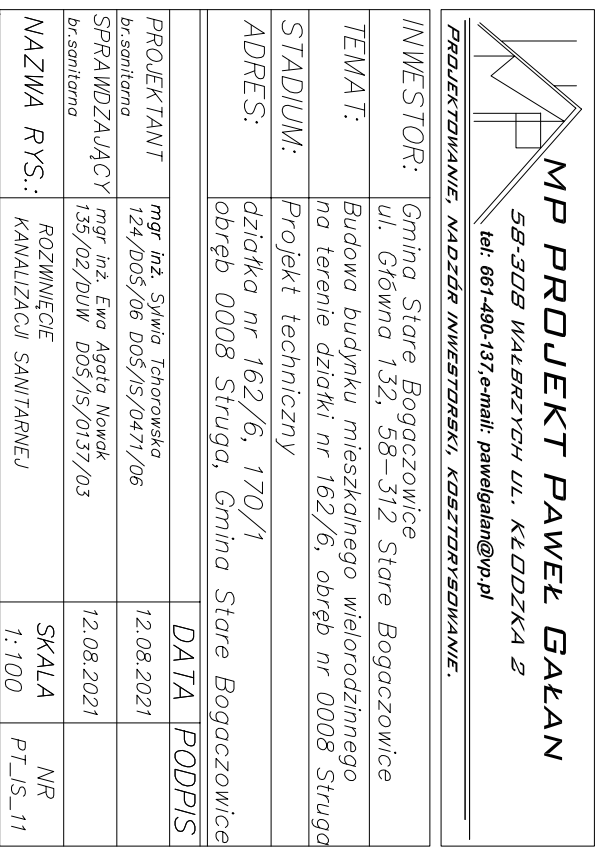 MP PROJEKT PAWEŁ GAŁAN
58-308 WAŁBRZYCH UL. KŁODZKA 2
tel: 661-490-137,e-mail: pawelgalan@vp.pl
PROJEKTOWANIE, NADZÓR INWESTORSKI, KOSZTORYSOWANIE.
INWESTOR: Gmina Stare Bogaczowice
ul. Główna 132, 58-312 Stare Bogaczowice
TEMAT: Budowa budynku mieszkalnego wielorodzinnego
na terenie działki nr 162/6, obręb nr 0008 Struga
STADIUM: Projekt techniczny
ADRES: działka nr 162/6, 170/1
obręb 0008 Struga, Gmina Stare Bogaczowice
DATA PODPIS
PROJEKTANT mgr inż. Sylwia Tchorowska 12.08.2021
br.sanitarna 124/DOŚ/06 DOŚ/IS/0471/06
SPRAWDZAJĄCY mgr inż. Ewa Agata Nowak 12.08.2021
br.sanitarna 135/02/DUW DOŚ/IS/0137/03
NAZWA RYS.: ROZWINIĘCIE SKALA NR
KANALIZACJI SANITARNEJ 1:100 PT_IS_11